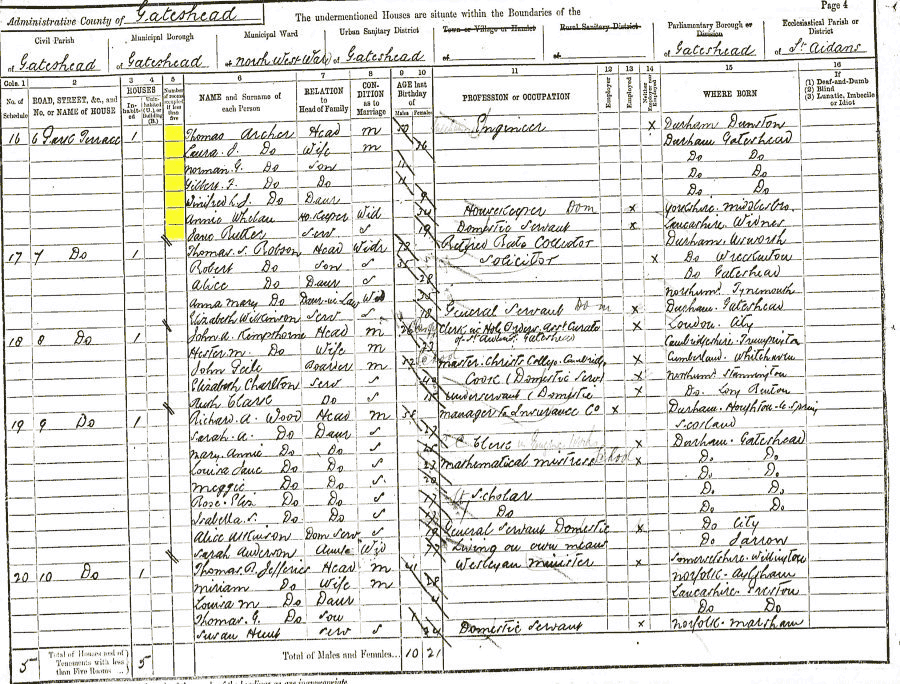 Administrative County of Gateshead The undermentioned Houses are situate within the Boundaries of the Page 4
Civil Parish Municipal Borough Municipal Ward Urban Sanitary District Town or Village or Hamlet Rural Sanitary District Parliamentary Borough or Division Ecclesiastical Parish or District
of Gateshead of Gateshead of North West Ward of Gateshead of of of Gateshead of St Aidans
Cols. 1 2 3 4 5 6 7 8 9 10 11 12 13 14 15 16
No. of Schedule ROAD, STREET, &c., and No. or NAME of HOUSE HOUSES In-habited Uninhabited (U.), or Building (B.) Number of rooms occupied if less than five NAME and Surname of each Person RELATION to Head of Family CONDITION as to Marriage AGE last Birthday of Males Females PROFESSION or OCCUPATION Employer Employed Neither WHERE BORN If (1) Deaf-and-Dumb (2) Blind (3) Lunatic, Imbecile or Idiot
16 6 Park Terrace 1 Thomas Archer Head M Engineer X Durham Dunston
Laura J. Do Wife M Durham Gateshead
Norman G. Do Son 11 Do Do
Gilbert Do Do Do Do
Do Daur 9 Do Do
Annie Whelan Ho. Keeper Wid Housekeeper Dom X Yorkshire Middlesbro
Jane Rutter Serv S 19 Domestic Servant X Lancashire Widnes
17 7 Do 1 Thomas S. Robson Head Widr 78 Retired Rate Collector Durham Usworth
Robert Do Son S 35 Solicitor X Do Wreckenton
Alice Do Daur S 28 Do Gateshead
Anna Mary Do Daur-in-Law Wid Northum. Tynemouth
Elizabeth Wilkinson Serv S General Servant Dom X Durham Gateshead
18 8 Do 1 John A. Kempthorne Head M 26 Clerk in Holy Orders Asst Curate of St Aidans, Gateshead X London City
Hester M. Do Wife M 23 Cambridgeshire Trumpington
John Peile Boarder M 52 Master Christs College Cambridge X Cumberland Whitehaven
Elizabeth Charlton Serv S 40 Cook (Domestic Serv) X Northum Stannington
Ruth Clark Do S Underservant (Domestic X Do. Long Benton
19 9 Do 1 Richard A. Wood Head M 58 Manager to Insurance Co X Durham Houghton le Spring
Sarah A. Do Daur S 27 Scotland
Mary Annie Do Do S Clerk X Durham Gateshead
Louisa Jane Do Do S 23 Mathematical Mistress School X Do. Do.
Meggie Do Do S 20 Do. Do.
Rose Eliz Do Do S 17 Scholar Do. Do.
Isabella S. Do Do S Do Do. Do.
Alice Atkinson Dom Serv S 19 General Servant Domestic X Do City
Sarah Anderson Wid 77 Living on own means Do Jarrow
20 10 Do 1 Thomas R. Jefferies Head M 41 Wesleyan Minister X Somersetshire
Miriam Do Wife M 38 Norfolk Aylsham
Louisa M Do Daur 4 Lancashire Preston
Thomas G. Do Son Do Do
Susan Hunt Serv S 24 Domestic Servant X Norfolk Marsham
5 Total of Houses and of Tenements with less than Five Rooms 5 Total of Males and Females... 10 21